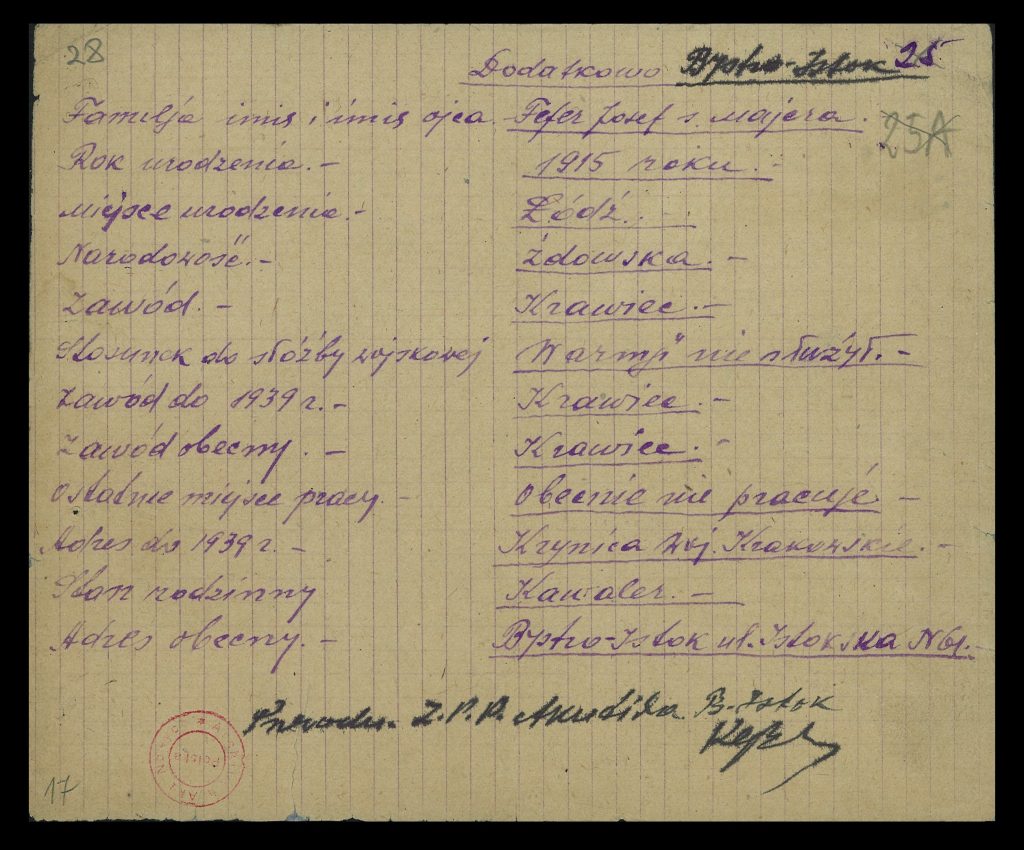 28
Dodatkowo Bystro-Istok 25
Familja imię i imię ojca Fefer Josef s. Majera.
25A
Rok urodzenia.- 1915 roku.-
Miejsce urodzenia.- Łódź.-
Narodowość.- Żdowska.-
Zawód.- Krawiec.-
Stosunek do słóżby wojskowej W armji nie służył.-
Zawód do 1939 r.- Krawiec.-
Zawód obecny.- Krawiec.-
Ostatnie miejsce pracy.- Obecnie nie pracuje.-
Adres do 1939 r.- Krynica woj. Krakowskie.-
Stan rodzinny Kawaler.-
Adres obecny.- Bystro-Istok ul. Istokska N 61.-
Z.P.P. B.-Istok
Polska
17